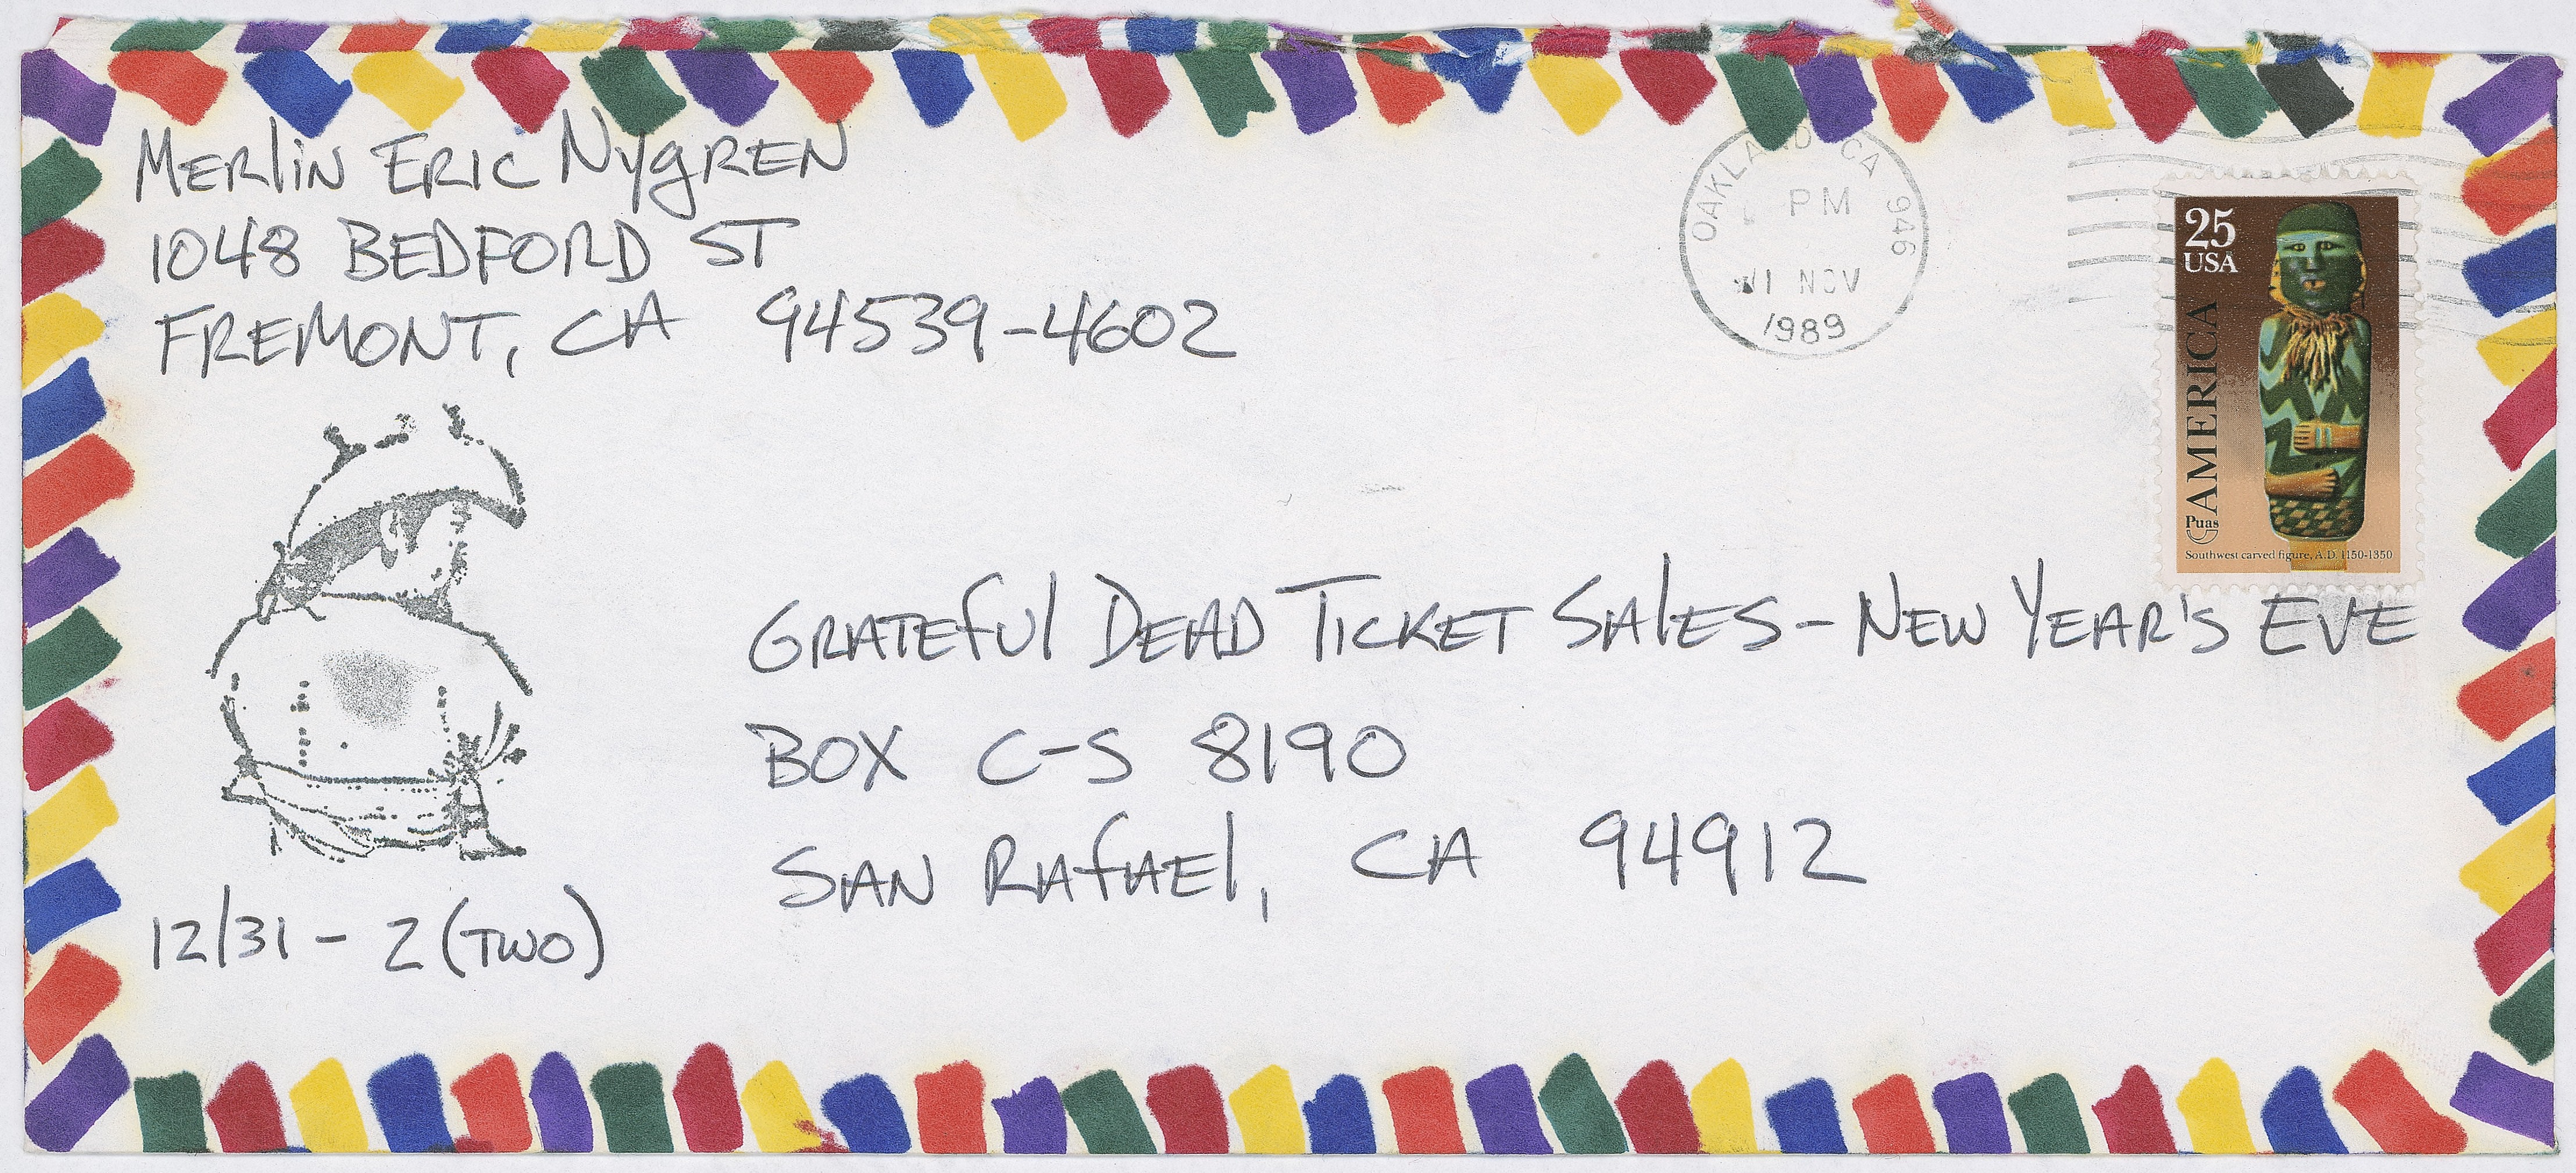 MERlIN ERIC NygREN
1048 BEDFORD ST
FREMONT, CA 94539-4602
OAKLAND CA 946
PM
1 NOV
1989
25
USA
AMERICA
Puas
Southwest carved figure, A.D. 1150-1350
GRATEful DEAD TICKET SAlES - NEW YEAR'S EVE
BOX C-S 8190
SAN RAfAEl, CA 94912
12/31 - 2 (TWO)